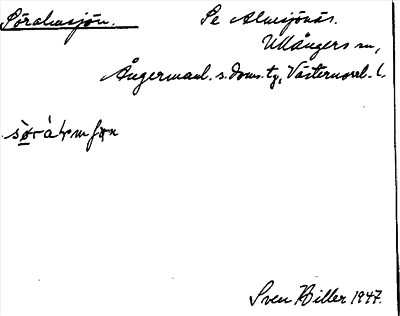 Söralmsjön. Se Almsjönäs.
Ullångers sn,
Ångermanl. s. doms. tg, Västernorrl. l.
Sven Biller 1947.